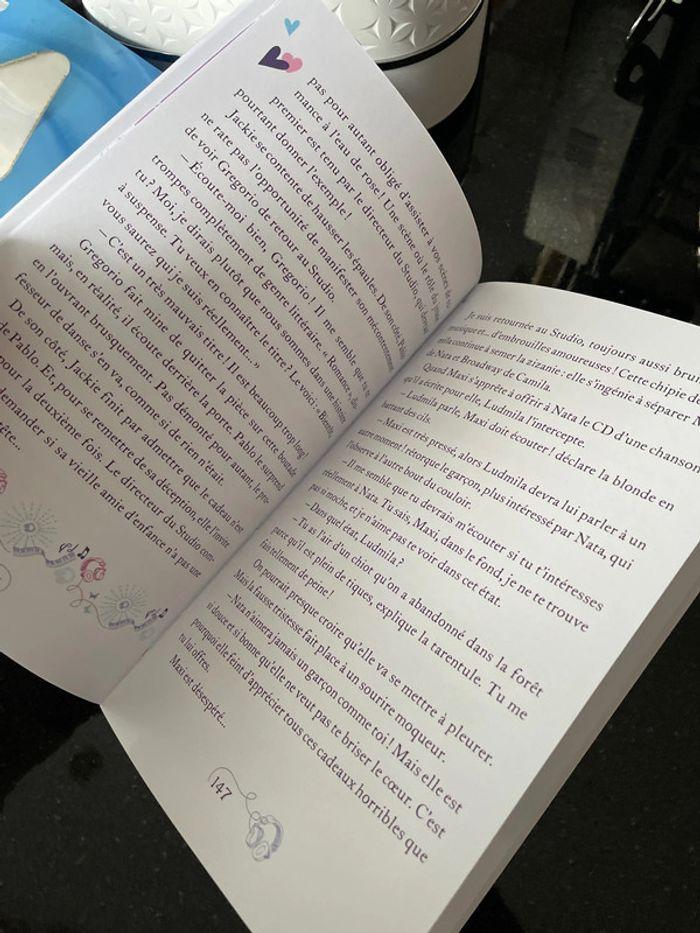 pas pour autant obligé d'assister à vos scènes de
mance à l'eau de rose ! Une scène où le rôle du
premier est tenu par le directeur du Studio, qui
pourtant donner l'exemple !
Jackie se contente de hausser les épaules. De son côté, Pablo
ne rate pas l'opportunité de manifester son mécontentement
de voir Gregorio de retour au Studio.
– Écoute-moi bien, Gregorio ! Il me semble, que tu te
trompes complètement de genre littéraire. « Romance »,
tu ? Moi, je dirais plutôt que nous sommes dans une histoire
à suspense. Tu veux en connaître le titre ? Le voici : « Bientôt
vous saurez qui je suis réellement... »
– C'est un très mauvais titre ! Il est beaucoup trop long !
Gregorio fait mine de quitter la pièce sur cette boutade
mais, en réalité, il écoute derrière la porte. Pablo le surprend
en l'ouvrant brusquement. Pas démonté pour autant, le pro-
fesseur de danse s'en va, comme si de rien n'était.
De son côté, Jackie finit par admettre que le cadeau n'est
de Pablo. Et, pour se remettre de sa déception, elle l'invite
pour la deuxième fois. Le directeur du Studio com-
demander si sa vieille amie d'enfance n'a pas une
tête...
Je suis retournée au Studio, toujours aussi
musique et... d'embrouilles amoureuses ! Cette chipie de
mila continue à semer la zizanie : elle s'ingénie à séparer
de Nata et Broadway de Camila.
Quand Maxi s'apprête à offrir à Nata le CD d'une chanson
qu'il a écrite pour elle, Ludmila l'intercepte.
– Ludmila parle, Maxi doit écouter ! déclare la blonde en
battant des cils.
– Maxi est très pressé, alors Ludmila devra lui parler à un
autre moment, rétorque le garçon, plus intéressé par Nata, qui
l'observe à l'autre bout du couloir.
– Il me semble que tu devrais m'écouter si tu t'intéresses
réellement à Nata. Tu sais, Maxi, dans le fond, je ne te trouve
pas si moche, et je n'aime pas te voir dans cet état.
– Dans quel état, Ludmila ?
– Tu as l'air d'un chiot qu'on a abandonné dans la forêt
parce qu'il est plein de tiques, explique la tarentule. Tu me
fais tellement de peine !
On pourrait presque croire qu'elle va se mettre à pleurer.
Mais la fausse tristesse fait place à un sourire moqueur.
– Nata n'aimera jamais un garçon comme toi ! Mais elle est
si douce et si bonne qu'elle ne veut pas te briser le cœur. C'est
pourquoi elle feint d'apprécier tous ces cadeaux horribles que
tu lui offres.
Maxi est désespéré...
147